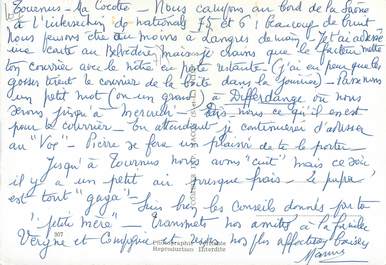 Tournus - Ma Cocotte - Nous campons au bord de la Saône
à l'intersection des nationales 75 et 6 ; Beaucoup de bruit
Nous pensons être au moins à Langres demain. Je t'ai adressé
une carte au Belvédère mais je crains que le facteur mette
ton courrier avec le nôtre en poste restante (J'ai eu peur que les
gosses tirent le courrier de la boîte dans la journée) - Passe nous
un petit mot (ou un grand) à Differdange où nous
serons jusqu'à mercredi - Dis nous ce qu'il en est
pour le courrier - En attendant je continuerai d'adresser
au "Vor" - Pierre se fera un plaisir de te le porter
Jusqu'à Tournus nous avons "cuit" mais ce soir
il y a un petit air presque frais - le pupa
est tout "gaga" - Suis bien les Conseils donnés par ta
"petite mère" - transmets nos amitiés à la famille
Vergne et Compagnie et reçois nos plus affectueux baisers
Mamus
307
Photographie Véritable
Reproduction Interdite